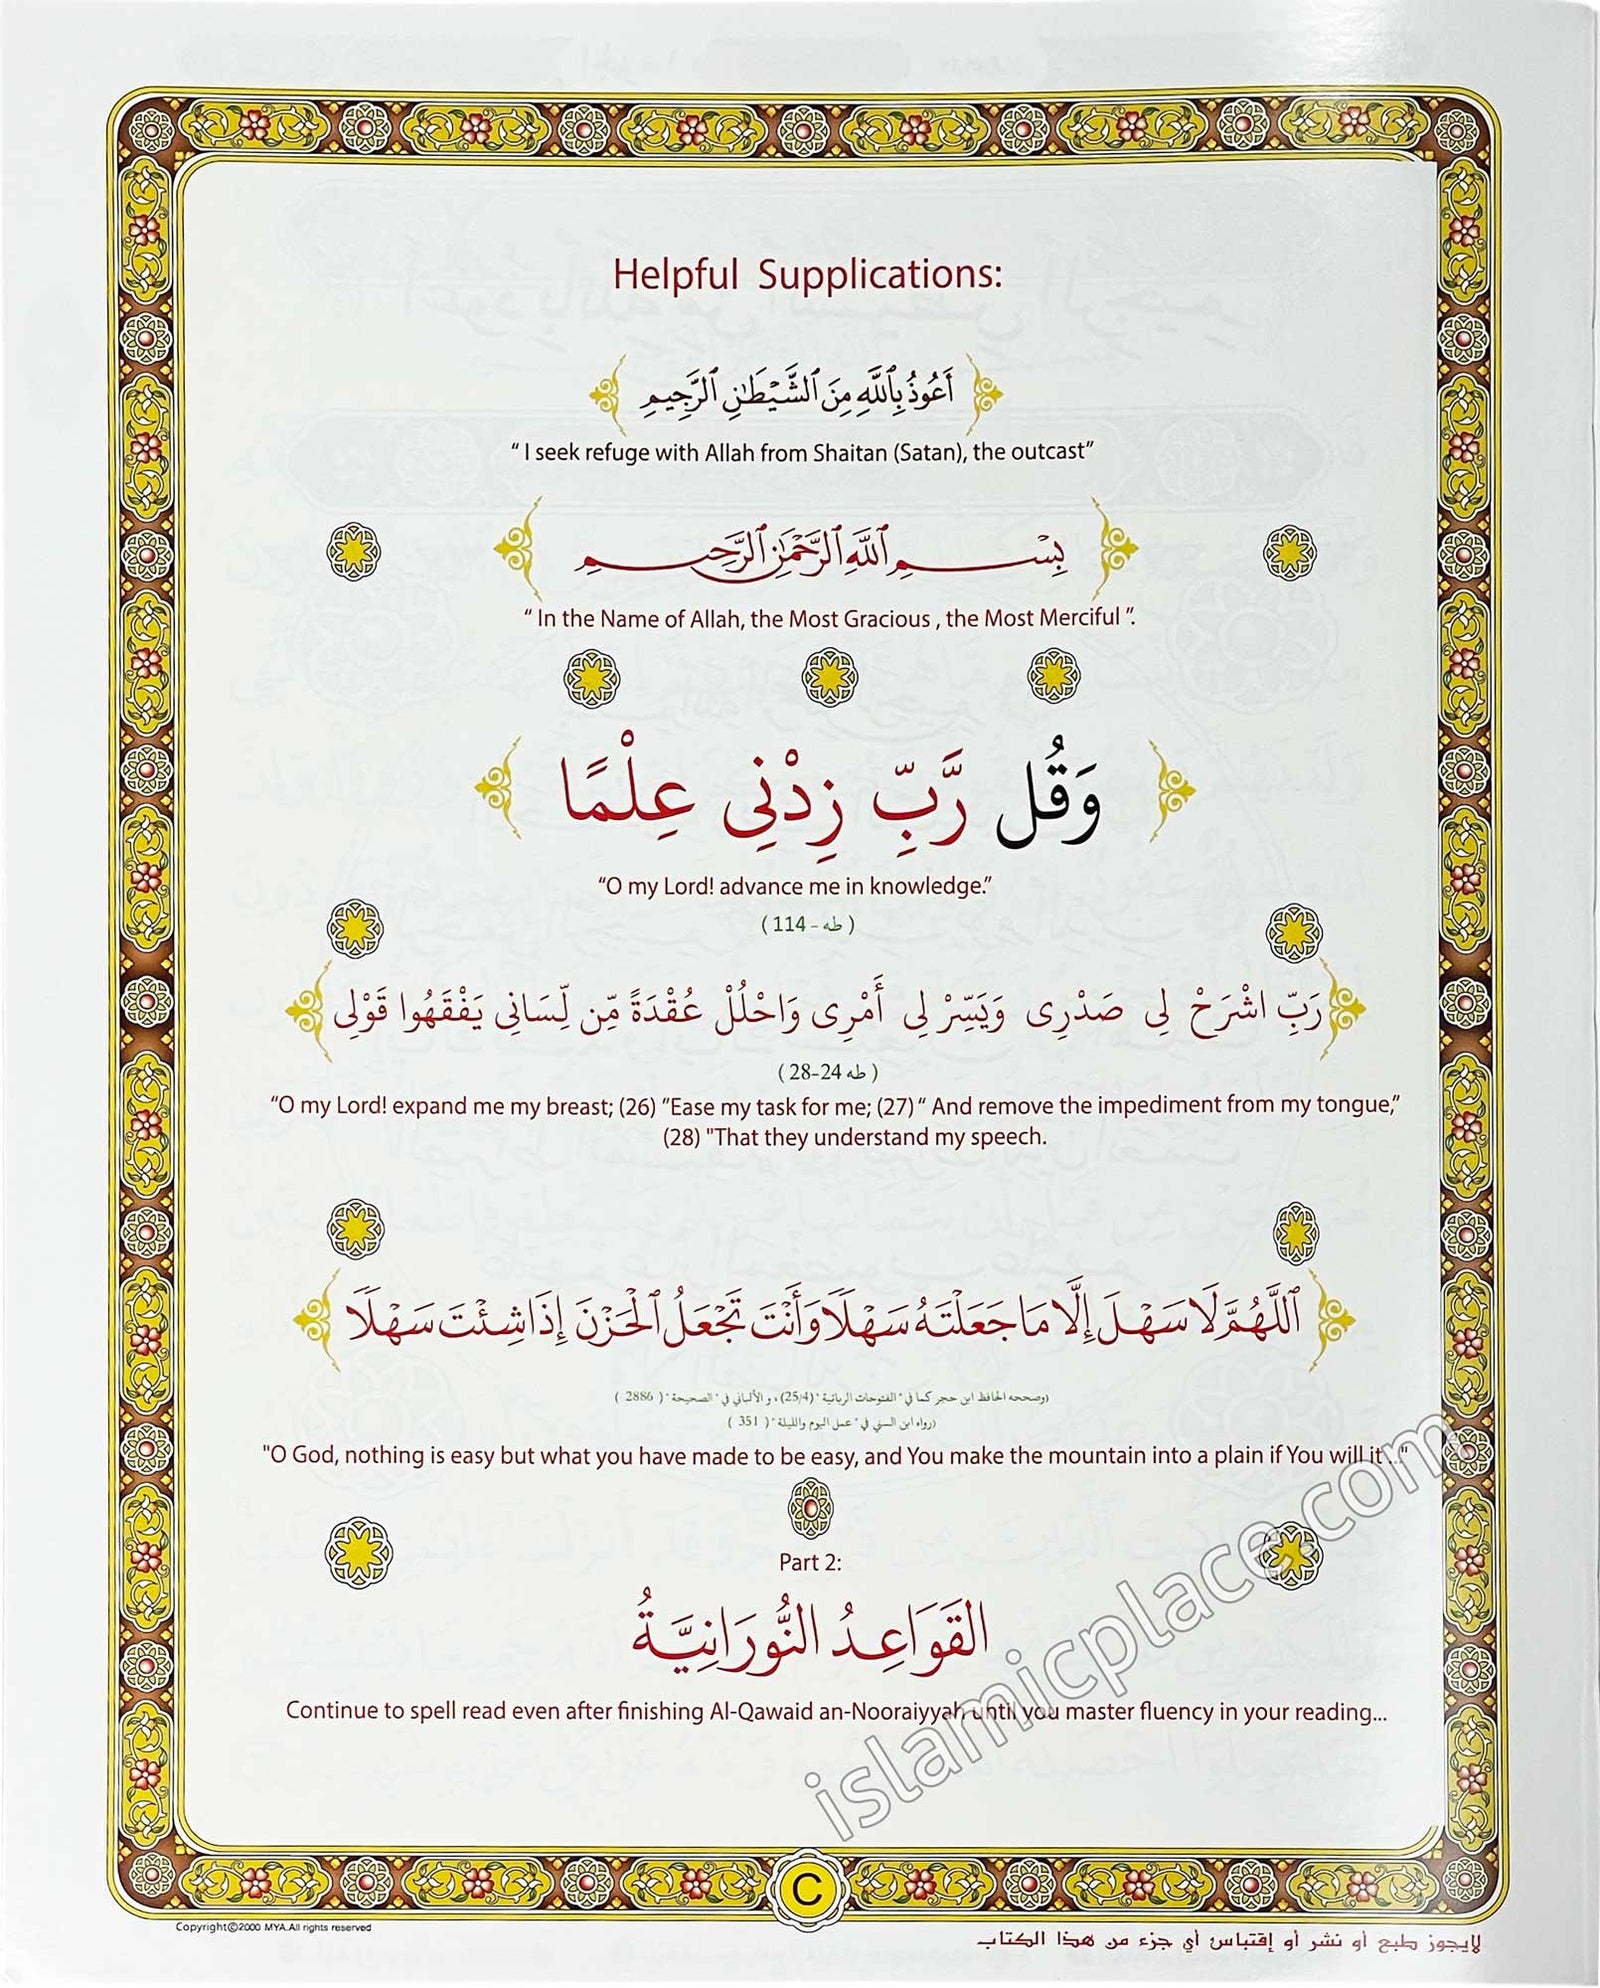 Helpful Supplications:
أَعُوذُ بِٱللَّهِ مِنَ ٱلشَّيْطَٰنِ ٱلرَّجِيمِ
“ I seek refuge with Allah from Shaitan (Satan), the outcast”
بِسْمِ ٱللَّهِ ٱلرَّحْمَٰنِ ٱلرَّحِيمِ
“ In the Name of Allah, the Most Gracious , the Most Merciful ”.
وَقُل رَّبِّ زِدْنِى عِلْمًا
“O my Lord! advance me in knowledge.”
( طه - 114 )
رَبِّ اشْرَحْ لِى صَدْرِى وَيَسِّرْ لِى أَمْرِى وَاحْلُلْ عُقْدَةً مِّن لِّسَانِى يَفْقَهُوا قَوْلِى
( طه 24-28 )
“O my Lord! expand me my breast; (26) ”Ease my task for me; (27) “ And remove the impediment from my tongue,”
(28) "That they understand my speech.
ٱللَّهُمَّ لَا سَهْلَ إِلَّا مَا جَعَلْتَهُ سَهْلًا وَأَنْتَ تَجْعَلُ ٱلْحَزْنَ إِذَا شِئْتَ سَهْلًا
(وصححه الحافظ ابن حجر كما في "الفتوحات الربانية "(25/4)، و الألباني في "الصحيحة "( 2886 )
(رواه ابن السني في "عمل اليوم والليلة "( 351 )
"O God, nothing is easy but what you have made to be easy, and You make the mountain into a plain if You will it..."
Part 2:
القَوَاعِدُ النُّورَانِيَّةُ
Continue to spell read even after finishing Al-Qawaid an-Nooraiyyah until you master fluency in your reading...
islamicplace.com
C
Copyright©2000 MYA.All rights reserved
لايجوز طبع أو نشر أو إقتباس أي جزء من هذا الكتاب